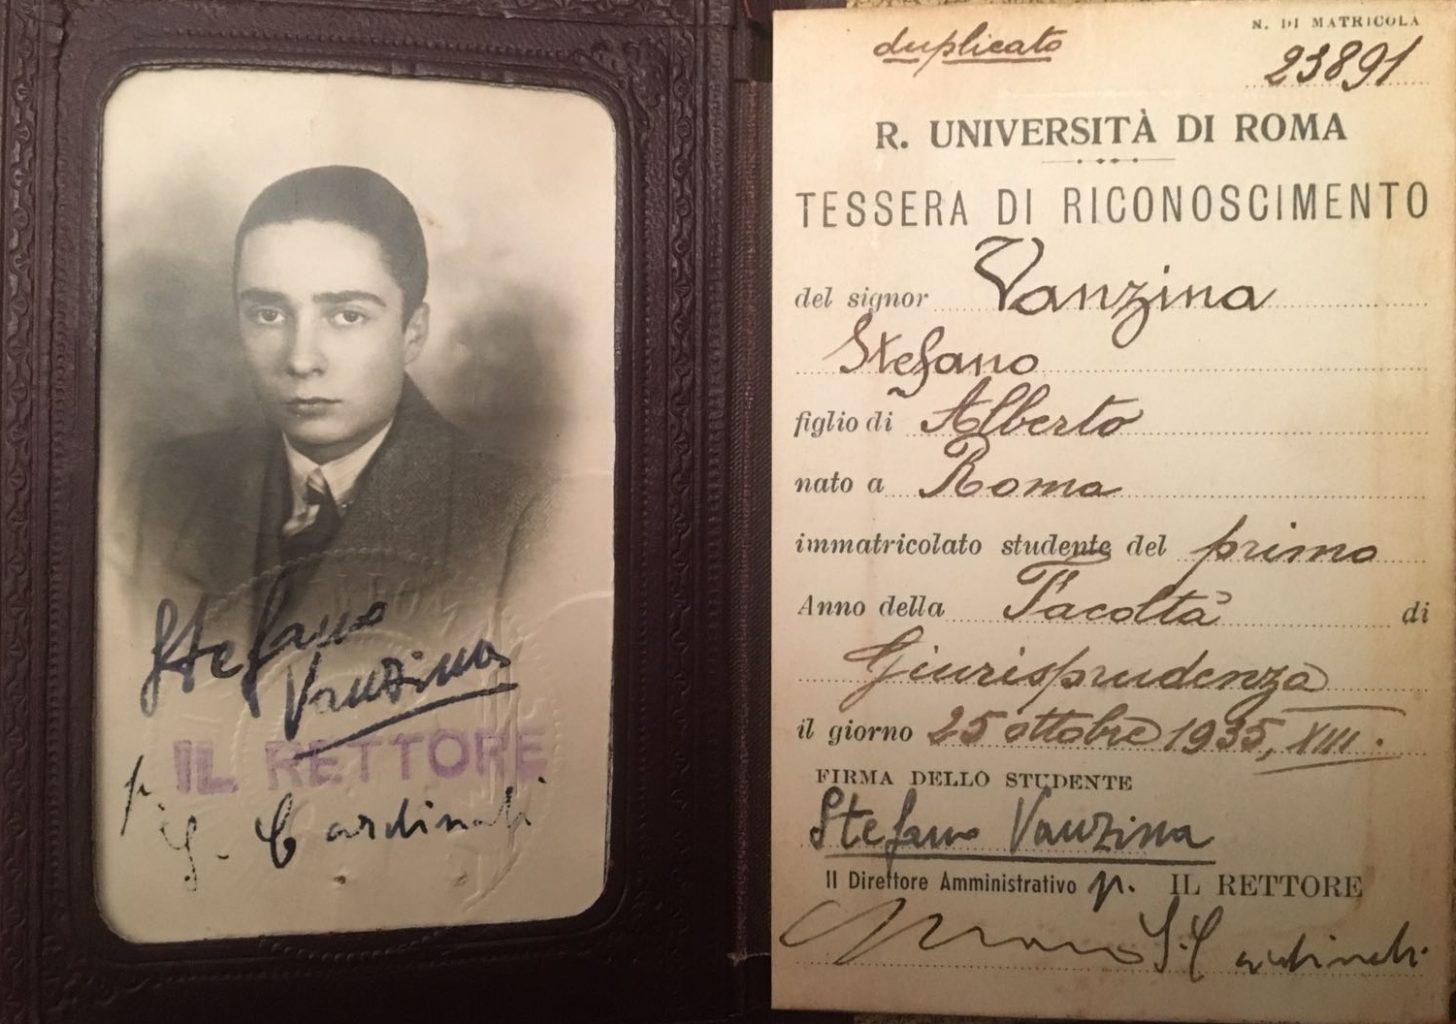 Stefano
Vanzina
IL RETTORE
p. G. Cardinali
duplicato
N. DI MATRICOLA
23891
R. UNIVERSITÀ DI ROMA
TESSERA DI RICONOSCIMENTO
del signor Vanzina
Stefano
figlio di Alberto
nato a Roma
immatricolato studente del primo
Anno della Facoltà di
Giurisprudenza
il giorno 25 ottobre 1935, XIII.
FIRMA DELLO STUDENTE
Stefano Vanzina
Il Direttore Amministrativo p. IL RETTORE
Cardinali